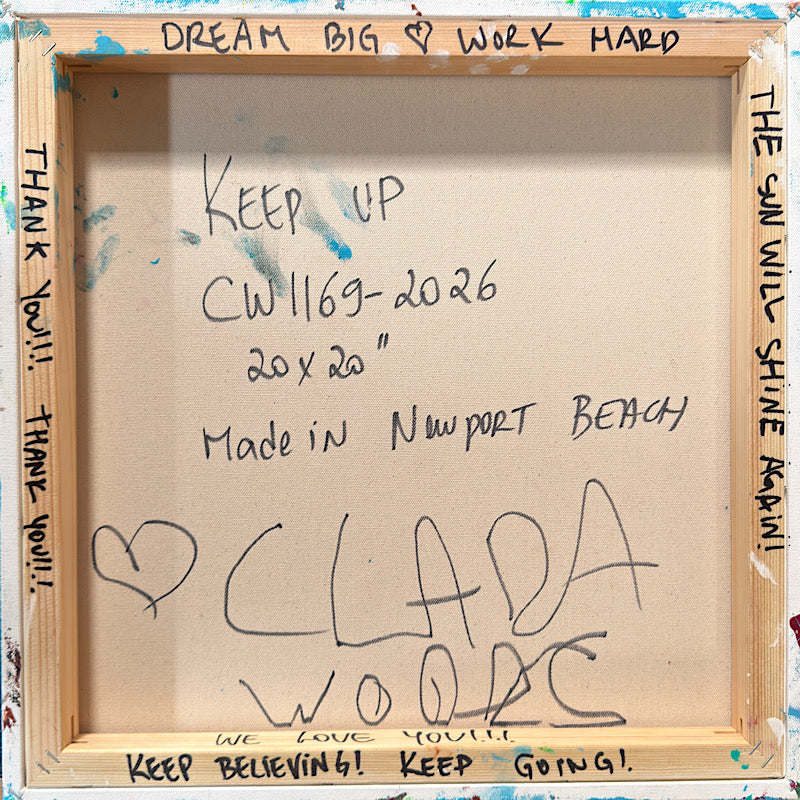 DREAM BIG ♡ WORK HARD
THE SUN WILL SHINE AGAIN!
THANK YOU!!! THANK YOU!!!
KEEP UP
CW1169-2026
20x20"
Made in NewPORT BEACH
♡ CLADA
WOODS
WE LOVE YOU!!!
KEEP BELIEVING! KEEP GOING!